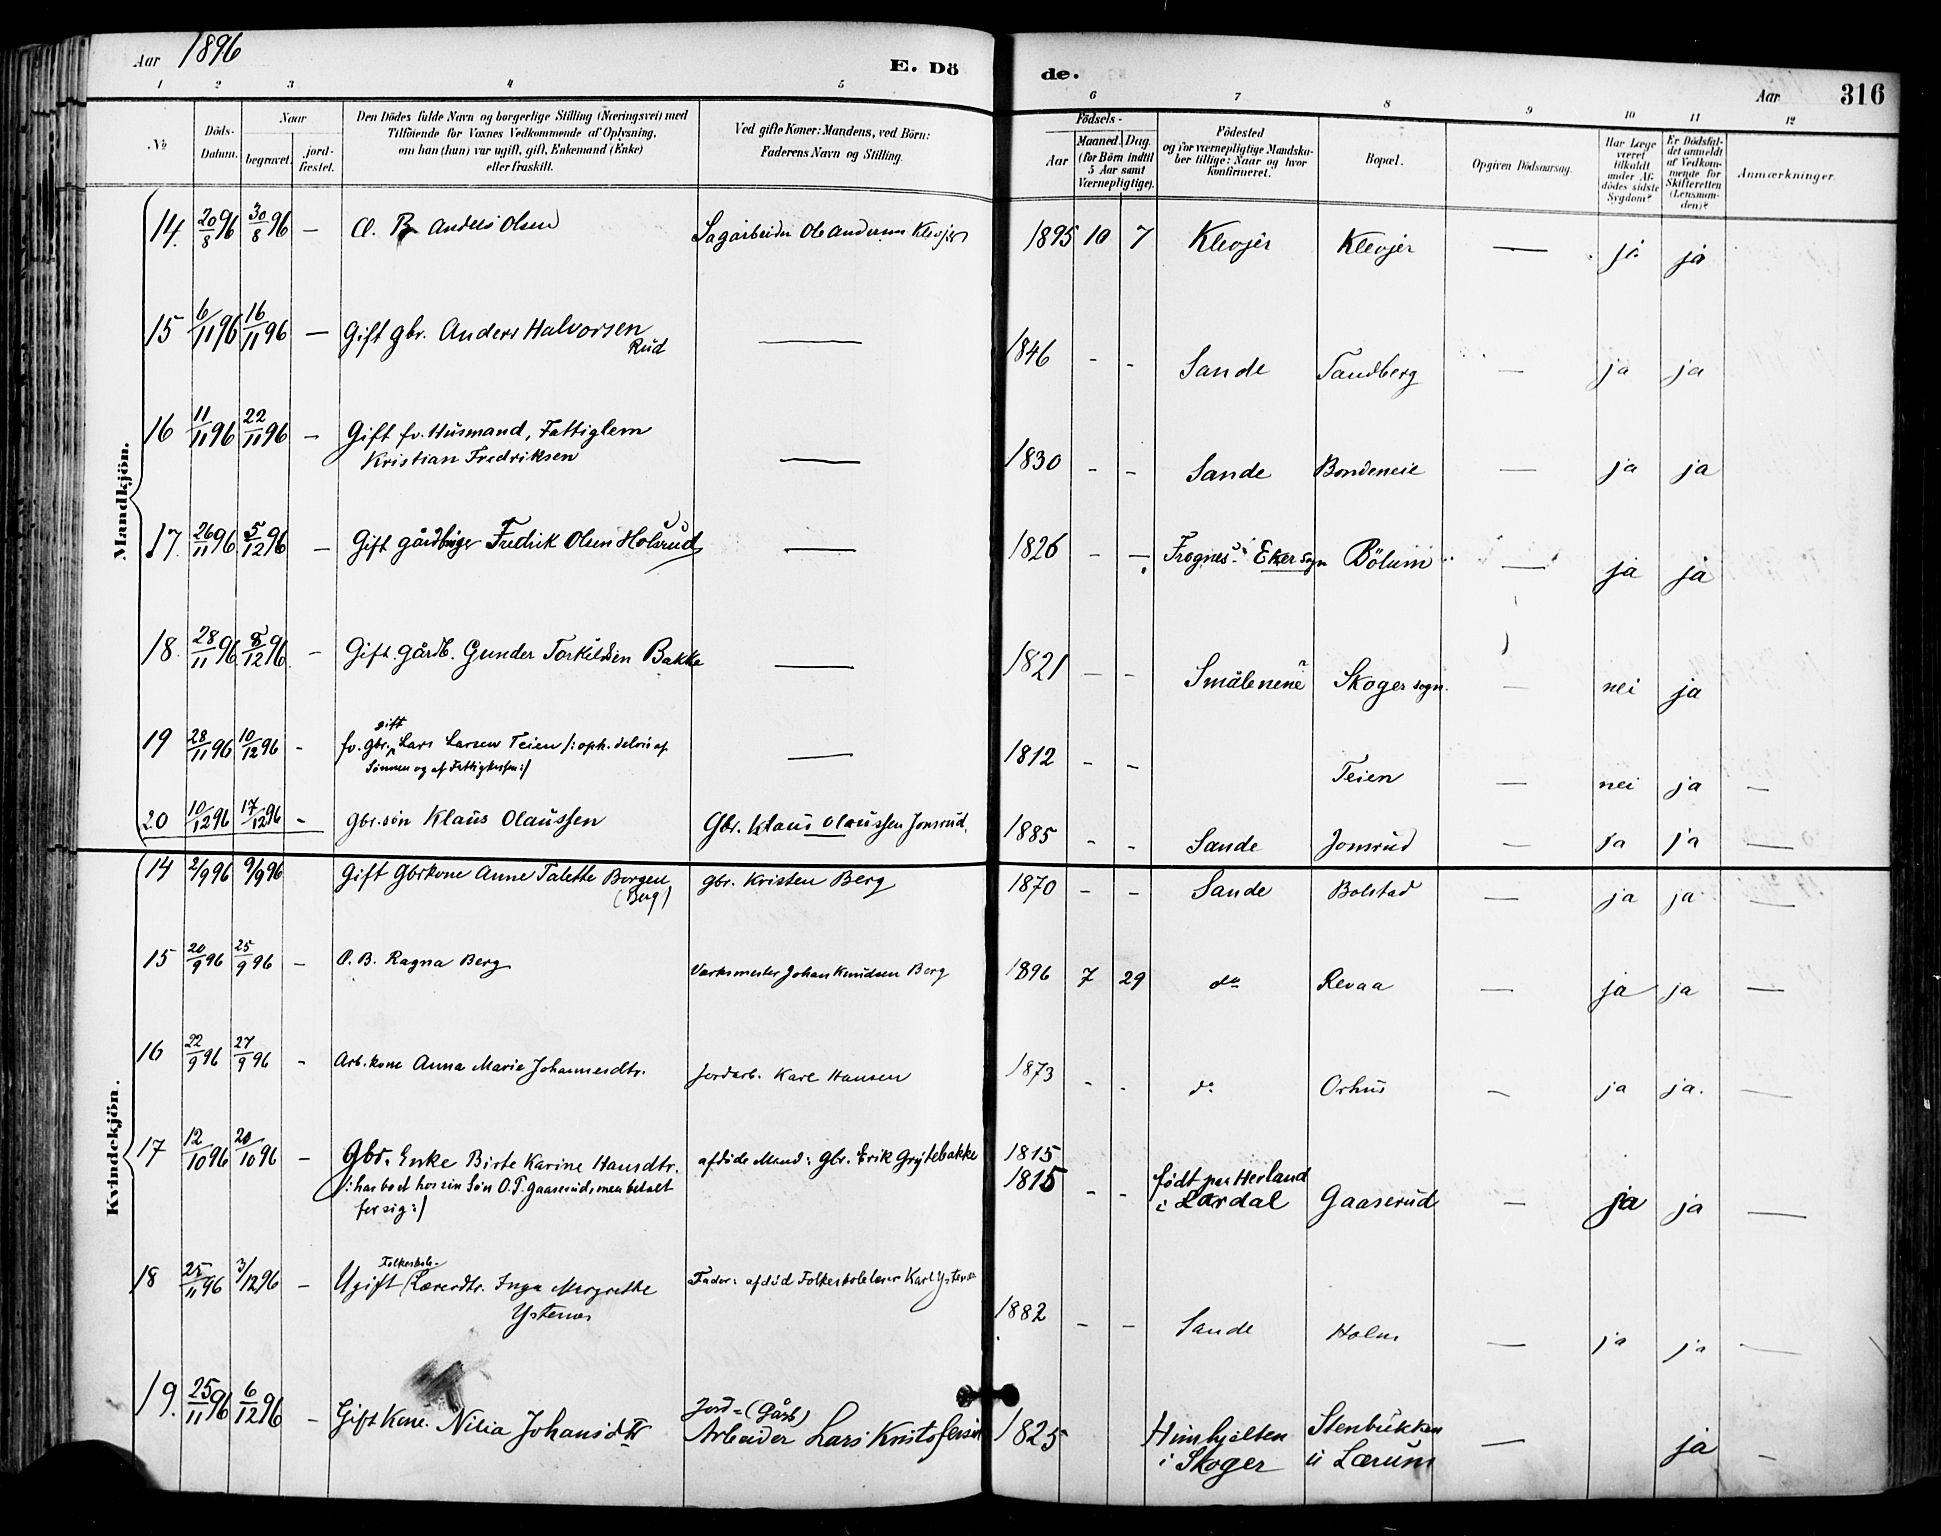 Aar 1896
E. Dö
de.
Aar
316
1 2 3 4 5 6 7 8 9 10 11 12
No
Döds-Datum.
Naar
begravet.
jord-fæstet.
Den Dödes fulde Navn og borgerlige Stilling (Næringsvei) med
Tilföiende for Voxnes Vedkommende af Oplysning,
om han (hun) var ugift, gift, Enkemand (Enke)
eller fraskilt.
Ved gifte Koner: Mandens, ved Börn:
Faderens Navn og Stilling.
Födsels-
Aar
Maaned. Dag.
(for Börn indtil
5 Aar samt
Værnepligtige).
Födested
og for værnepligtige Mandska-
ber tillige: Naar og hvor
konfirmeret.
Bopæl.
Opgiven Dödsaarsag.
Har Læge
været
tilkaldt
under Af-
dödes sidste
Sygdom?
Er Dödsfal-
det anmeldt
af Vedkom-
mende for
Skifteretten
(Lensman-
den)?
Anmærkninger.
Mandkjön.
14. 20/8 96 30/8 96 — Anders Olsen Sagarbeider Ole Andersen Klevjer 1895 10 7 Klevjer Klevjer — ja ja
15 6/11 96 16/11 96 — Gift gbr. Anders Halvorsen
Rud — 1846 - - Sande Tandberg — ja ja
16 11/11 96 22/11 96 — Gift fv. Husmand, Fattiglem
Kristian Fredriksen — 1830 - - Sande Bondeneie — ja ja
17. 26/11 96 5/12 96 — Gift gårdbruger Fredrik Olsen Holsrud — 1826 - — Frognes i Eker sogn Bölum — ja ja
18. 28/11 96 8/12 96 — Gift. gårdb. Gunder Torkildsen Bakke — 1821 - - Smålenene Skoger sogn. — nei ja
19 28/11 96 10/12 96 - gift
fv. gbr. Lars Larsen Teien /: oph. delvis af
Sönnen og af Fattigkassen :/ — 1812 - - Teien — nei ja —
20 10/12 96 17/12 96 - gbr. sön Klaus Olaussen Gbr. Klaus Olaussen Jonsrud. 1885 - - Sande Jonsrud — ja ja —
Kvindekjön.
14 2/9 96 9/9 96 Gift Gbrkone Anne Talette Borgen
(Berg) gbr. Kristen Berg 1870 - - Sande Bolstad — ja ja —
15 20/9 96 25/9 96 - O. B. Ragna Berg Værksmester Johan Knudsen Berg 1896 7 29 do Revaa — ja ja —
16 22/9 96 27/9 96 - Arb. kone Anna Marie Johannesdtr. Jordarb. Karl Hansen 1873 - - do Orhus — ja ja. —
17 12/10 96 20/10 96 - Gbr. Enke Birte Karine Hansdtr. afdöde Mand: Gbr. Erik Grytebakke 1815
/: har boet hos sin Sön O. T. Gaaserud, men betalt
for sig :/ 1815 - - födt paa Herland
i Lardal Gaaserud — ja ja —
18 25/11 96 3/12 96 - Folkeskole-
Ugift Lærerdtr. Inga Margrethe
Ystenes Fader: afdöd Folkeskolelærer Karl Ystenes 1882 - - Sande Holm — ja ja —
19. 25/11 96 6/12 96 - Gift Kone. Nilia Johansdtr Jord- (Gårb)
Arbeider Lars Kristofersen 1825 i Skoger Stenbukken
u Lærum — ja —